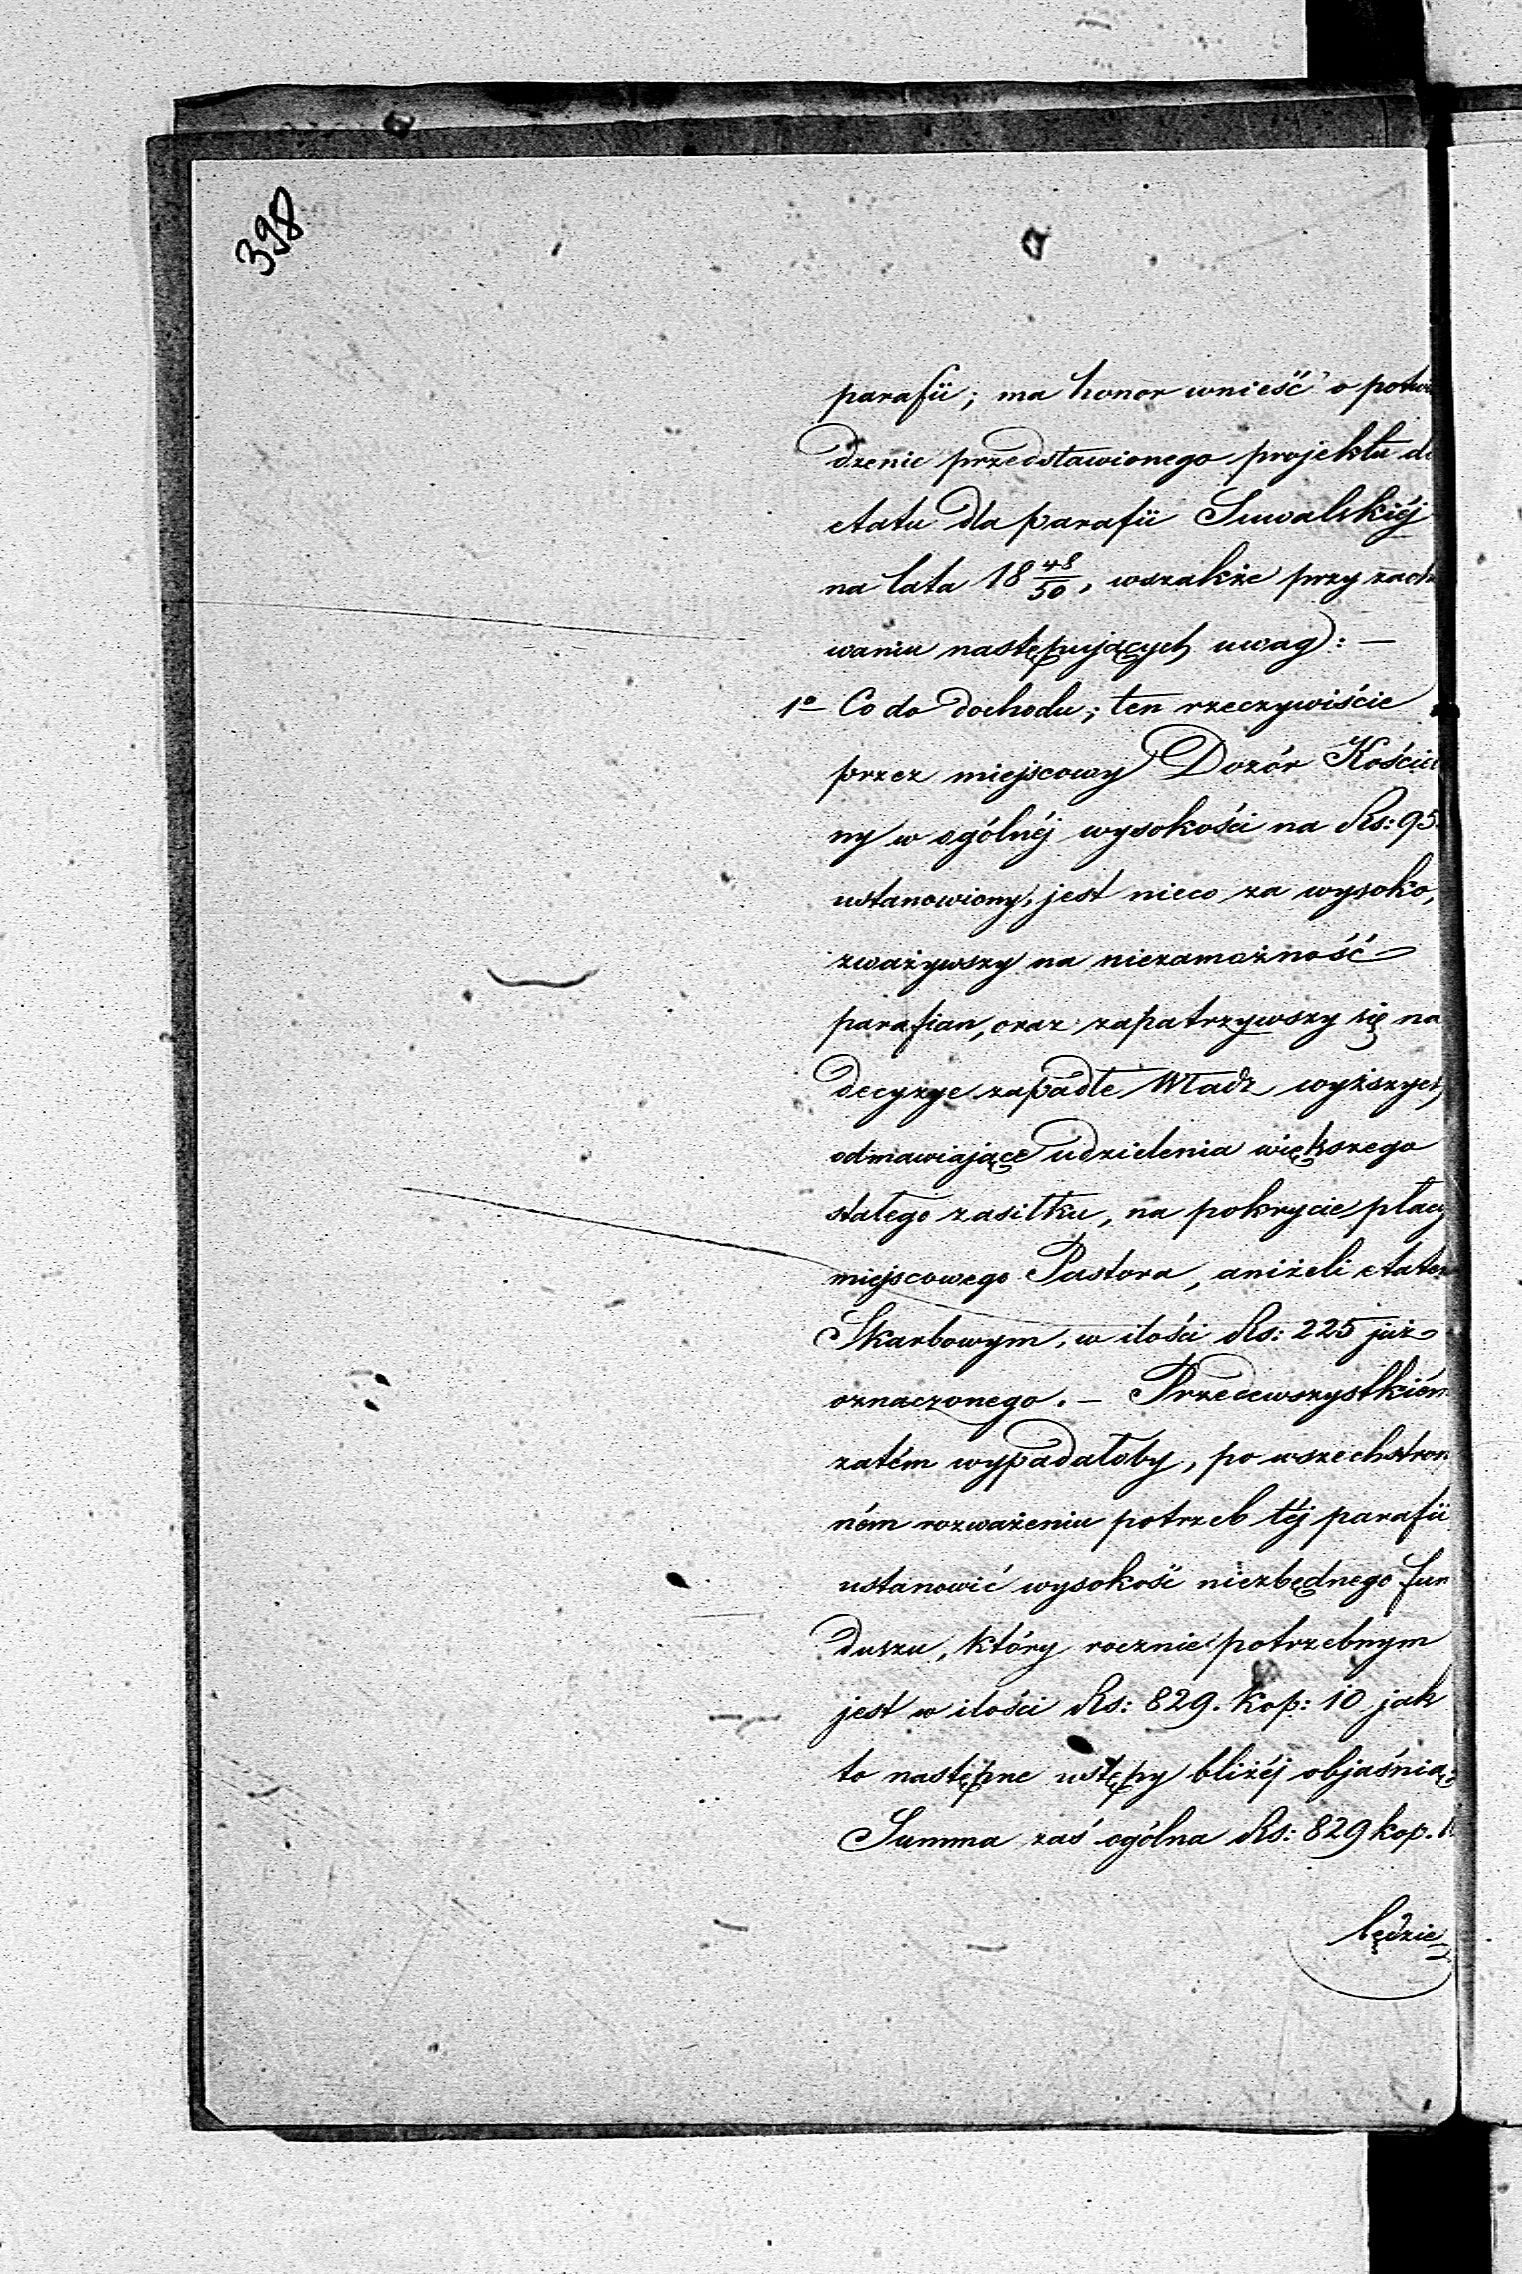 398
parafii; ma honor wnieść o potwi
dzenie przedstawionego projektu do
etatu dla parafii Suwalskiéj
na lata 18 48/50, wszakże przy zach
waniu następujących uwag: —
1o Co do dochodu; ten rzeczywiście
przez miejscowy Dozór Kościel
ny w ogólnéj wysokości na Rs: 95
ustanowiony, jest nieco za wysoko,
zważywszy na niezamożność
parafian, oraz zapatrzywszy się na
decyzye zapadłe Władz wyższych
odmawiające udzielenia większego
stałego zasiłku, na pokrycie płacy
miejscowego Pastora, aniżeli etatem
Skarbowym, w ilości Rs: 225 już
oznaczonego. — Przedewszystkiém
zatém wypadałoby, po wszechstron
ném rozważeniu potrzeb téj parafii
ustanowić wysokość niezbędnego fun
duszu, który rocznie potrzebnym
jest w ilości Rs: 829. kop: 10 jak
to następne ustępy bliżéj objaśnią;
Summa zaś ogólna Rs: 829 kop. 1
będzie